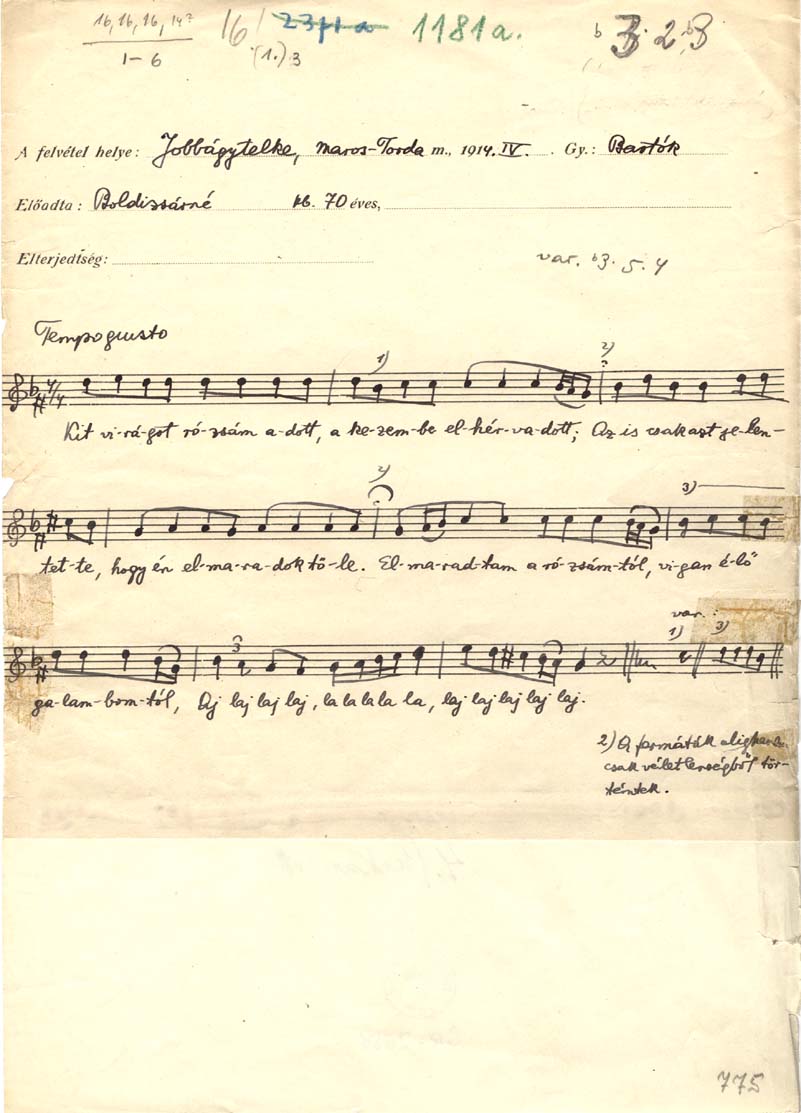 16, 16, 16, 14?
1-6
16/
(1.) 3
23f1 a
1181a.
b 3. 2 b3
A felvétel helye: Jobbágytelke, Maros-Torda m., 1914. IV. Gy.: Bartók
Előadta: Boldizsárné 70 éves,
Elterjedtség:
var. b3. 5. 4
Tempo giusto
1) 2)
4/4
Kit vi-rá-got ró-zsám a-dott, a ke-zem-be el-hér-va-dott; Az is csak azt je-len-
2) 3)
tet-te, hogy én el-ma-ra-dok tő-le. El-ma-rad-tam a ró-zsám-tól, vi-gan é-lő
var.:
3 1) 3)
ga-lam-bom-tól, Aj laj laj laj, la la la la la, laj laj laj laj laj.
2) A fermáták
csak véletlenségből tör-
téntek.
775